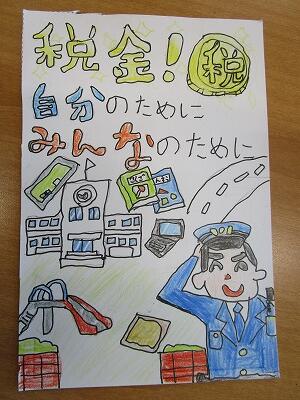 税金！
税
自分のために
みんなのために